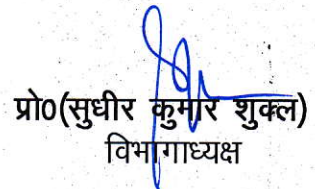 प्रो0(सुधीर कुमार शुक्ल)
विभागाध्यक्ष